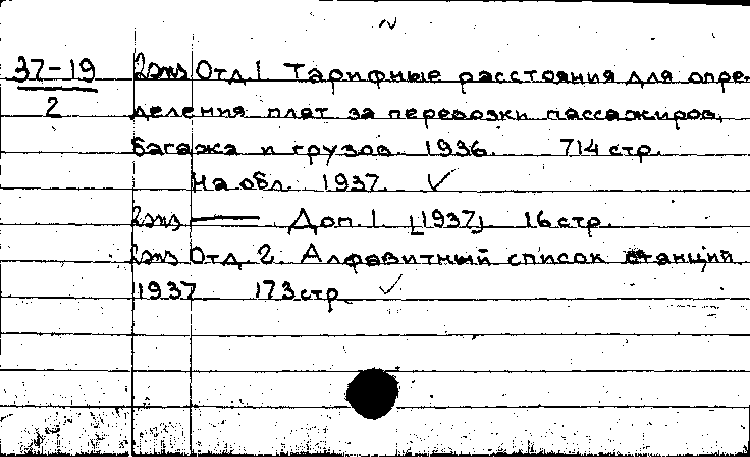 N
37-19
2
2экз Отд. 1 Тарифные расстояния для опре-
деления плат за перевозки пассажиров,
багажа и грузов. 1936. 714 стр.
На обл. 1937. ✓
2экз —— Доп. 1 [1937] 16 стр.
2экз Отд. 2. Алфавитный список станций
1937 173 стр. ✓